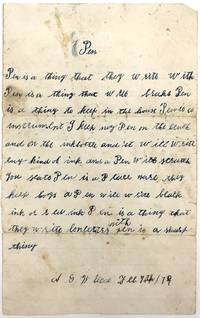 Pen
Pen is a thing that they write with
Pen is a thing that will brake Pen
is a thing to keep in the house Pen is a
instrument I keep my Pen on the
and on the inkbottle and it will write
any kind of ink and a Pen will scratch
Pen is a Place ware they
keep hogs a Pen will write black
ink or ink Pen is a thing that
they write with pen is a sharp
thing